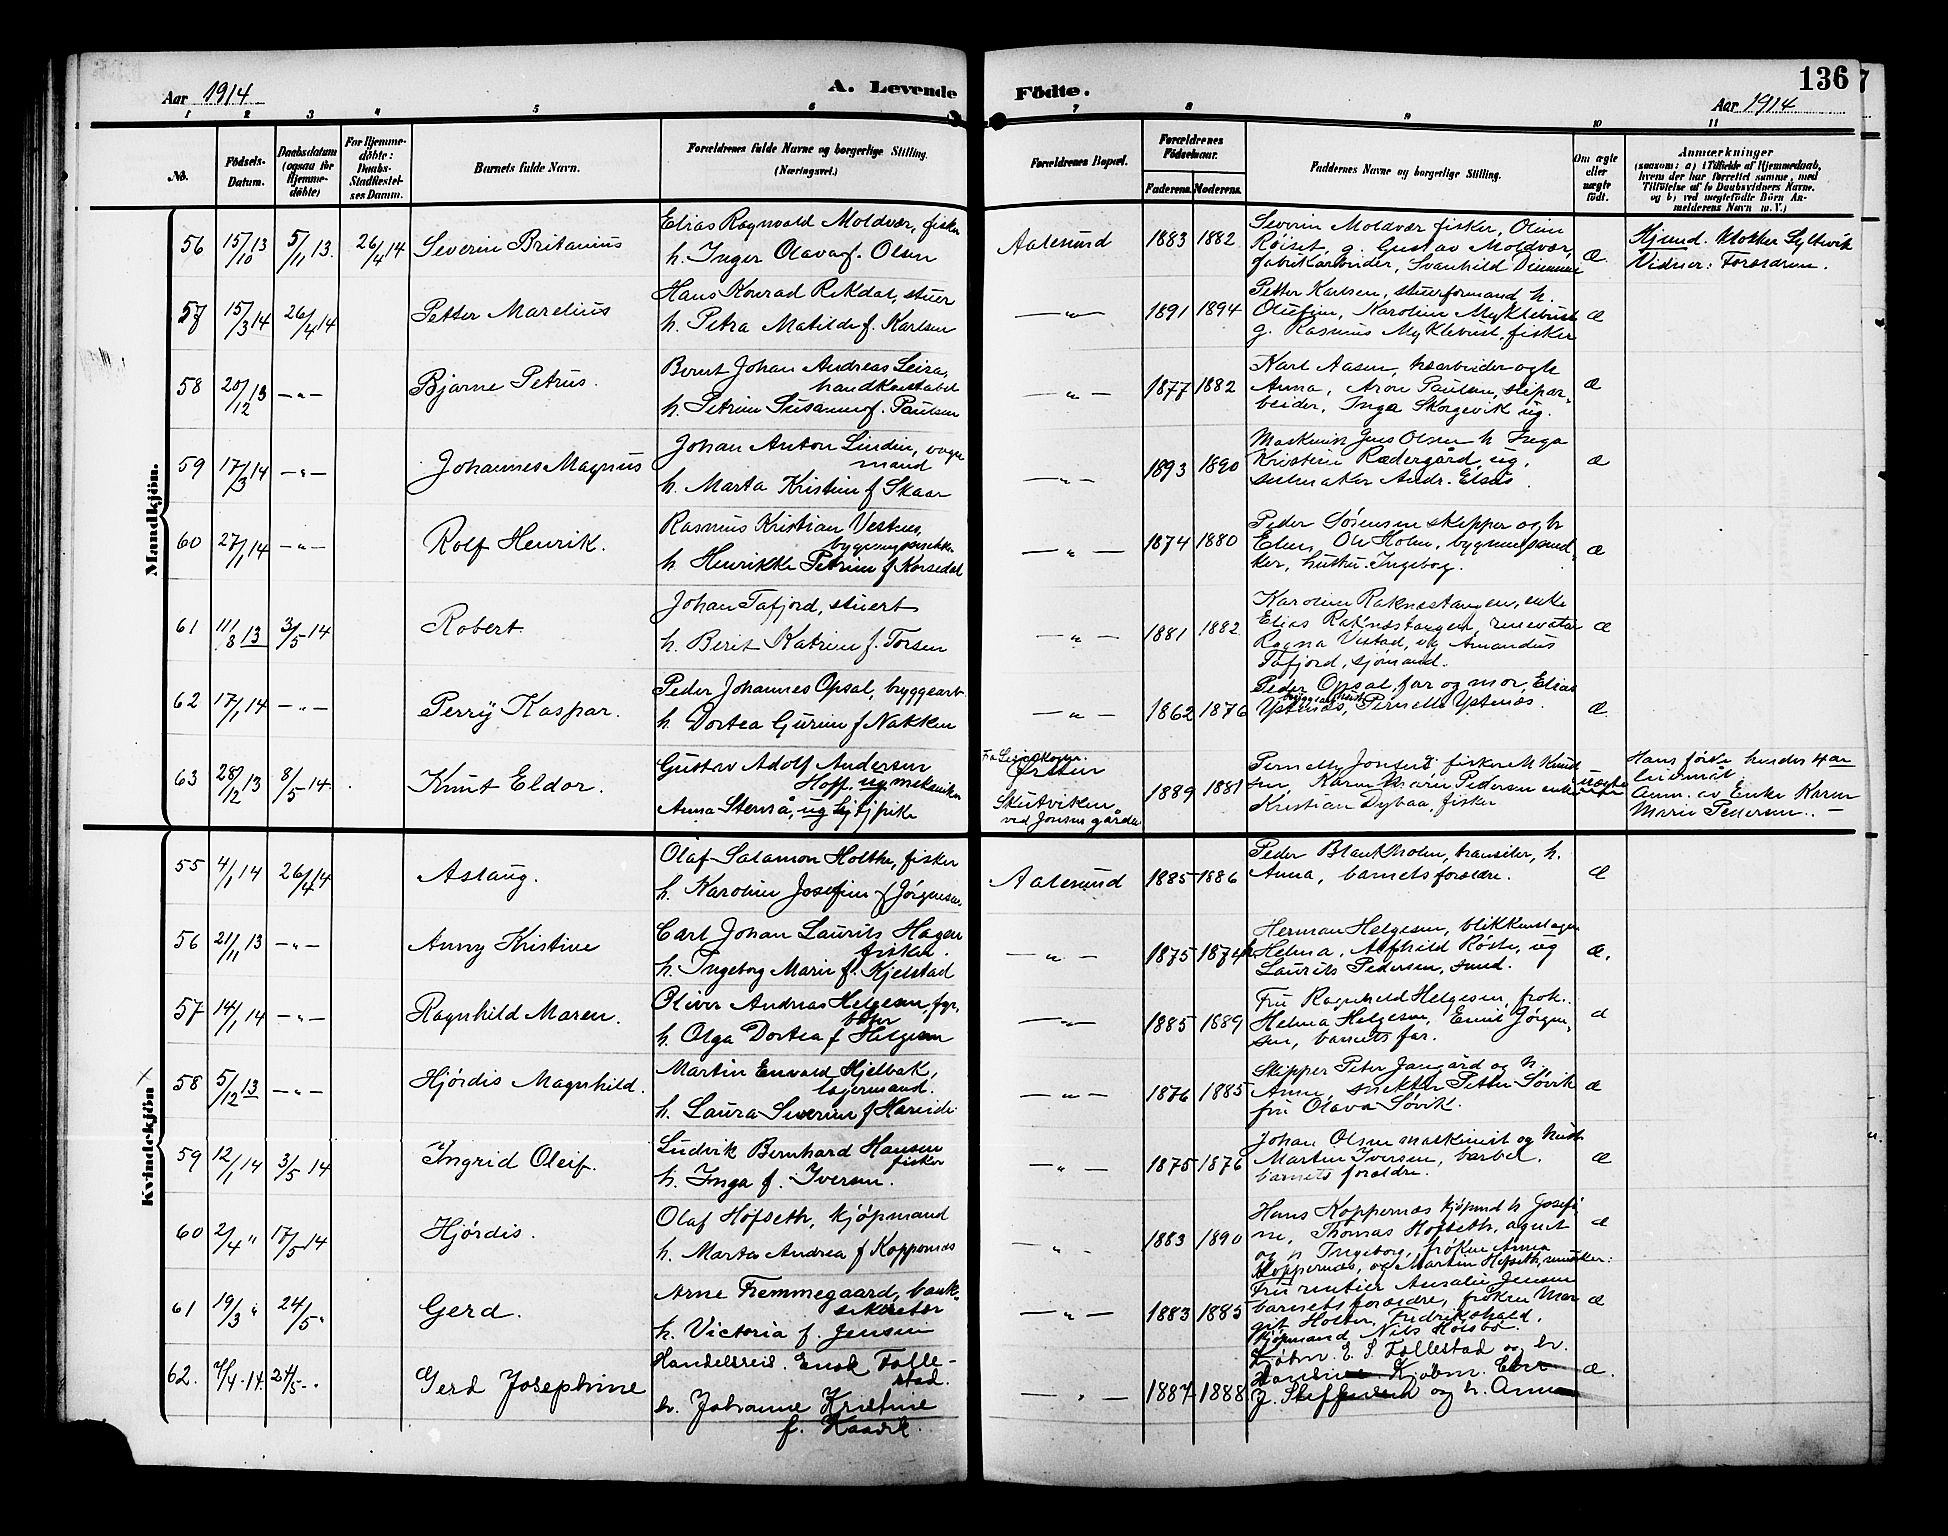 136
Aar 1914
A. Levende
Födte.
Aar 1914
1 2 3 4 5 6 7 8 9 10 11
No.
Födsels-Datum.
Daabsdatum (ogsaa for Hjemme-döbte)
For Hjemme-döbte: Daabs-Stadfæstel-ses Datum.
Barnets fulde Navn.
Forældrenes fulde Navne og borgerlige Stilling. (Næringsvei.)
Forældrenes Bopæl.
Forældrenes Födselsaar.
Faderens. Moderens.
Faddernes Navne og borgerlige Stilling.
Om ægte eller uægte födt.
Anmærkninger
(saasom: a) i Tilfælde af Hjemmedaab, hvem der har forrettet samme, med Tilföielse af to Daabsvidners Navne. og b) ved uægtefödte Börn An-melderens Navn m. V.)
Mandkjön.
56 15/10 13 5/1 13. 26/4 14 Severin Britanius
Elias Ragnvald Moldvær, fisker
h. Inger Olava f. Olsen
Aalesund 1883 1882
Severin Moldvær fisker, Olin
Röiset, g. Gustav Moldvær,
fabrikarbeider, Svanhild
æ
Hjemd. Klokker Syltevik
Vidner: Forældrene.
57 15/3 14 26/4 14 Petter Marelius
Hans Konrad Rekdal, stuer
h. Petra Matilde f. Karlsen
— " — 1891 1894
Petter Karlsen, stuerformand, h.
Olufine, Karoline Myklebust
g. Rasmus Myklebust, fisker
æ
58 20/12 13 — " — Bjarne Petrus.
Bernt Johan Andreas Leira,
h. Petrine Susanne f. Paulsen
— " — 1877 1882
Karl Aasen, arbeider og h
Anna, Aron Paulsen, slipar-
beider, Inga Skorgevik ug.
æ
59 17/3 14 — " — Johannes Magnus
Johan Anton Lindin, vogn
mand
h. Marta Kristine f Skaar
— " — 1893 1890
Maskinist Jens Olsen h Inga
Kristine Rædergård, ug,
Andr. Elsås.
æ
60 27/1 14 — " — Rolf Henrik.
Rasmus Kristian Vestnes,
bygningssnekker
h. Henrikke Petrine f Korsedal
— " — 1874 1880
Peder Sörensen skipper og h
Eline, Ole Holm, bygningssned-
ker, hustru Ingeborg.
æ
61 11/8 13 3/5 14 Robert.
Johan Tafjord, stuert
h. Berit Katrine f. Torsen
— " — 1881 1882
Karoline Raknestangen, enke
Elias Raknestangen,
Ragna Vestad, ug Amandus
Tafjord, sjömand.
æ
62 17/1 14 — " — Perry Kaspar.
Peder Johannes Opsal, byggearb.
h. Dortea Gurine f Nakken
— " — 1862 1876
Peder Opsal, far og mor, Elias
Ystenæs, Pernelle Ystenæs.
æ
63 28/12 13 8/5 14. Knut Eldor.
Gustav Adolf Andersen
Hoff. ug mekaniker
Anna Stenså, ug
Skutviken
ved Jonsengården
1889 1881
Pernelly Jonsen, fisker M Knud
sen, Karen Marie Pedersen enke
Kristian Dybaa, fisker
uægte
Hans förste hendes 4de
leiermål
Anm. av Enke Karen
Marie Pedersen.
Kvindekjön
55 4/1 14 26/4 14 Aslaug.
Olaf Salamon Holthe, fisker
h. Karoline Josefine f Jörgensen
Aalesund 1885 1886
Peder Blankholm, h.
Anna, barnets forældre.
æ
56 21/11 13 — " — Anny Kristine
Carl Johan Laurits Hagen
fisker.
h. Ingeborg Marie f. Kjelstad
— " — 1875 1874
Herman Helgesen, blikkenslager
h. Helma, Alfhild Röste, ug
Laurits Pedersen, smed.
æ.
57 14/1 14 — " — Ragnhild Maren.
Oliver Andreas Helgesen, fyr-
böter
h. Olga Dortea f Helgesen
— " — 1885 1889
Fru Ragnhild Helgesen, frök.
Helma Helgesen, Emil Jörgen-
sen, barnets far.
æ
58 5/12 13 — " — Hjördis Magnhild.
Martin Envald Hjelbak,
lagermand.
h. Laura Severine f Hareide
— " — 1876 1885
Skipper Peter Jangård og h.
Anne, snekker Petter Sövik
fru Olava Sövik.
æ
59 12/1 14 3/5 14 Ingrid Oleif.
Ludvik Bernhard Hansen
fisker
h. Inga f. Iversen.
— " — 1875 1876
Johan Olsen maskinist og hust.
Martin Iversen,
barnets forældre.
æ
60 2/4 " 17/5 14 Hjördis.
Olaf Hofseth, kjöpmand
h. Marta Andrea f Koppernæs
— " — 1883 1890
Hans Koppernæs kjöpmd h Josefi-
ne, Thomas Hofseth, agent
og h Ingeborg, fröken Anna
Koppernæs, og Martin Hofseth,
æ
61 19/3 " 24/5 " Gerd.
Arne Fremmegaard, bank-
sekretær
h. Victoria f. Jensen
— " — 1883 1885
Fru rentier Amalie Jensen
barnets forældre, fröken Mar
git Holter, Fredrikshald,
kjöpmand Nils Holsbö.
æ
62. 7/4 14. 24/5 - " Gerd Josephine
Handelsreis. Enok Falle-
stad.
h. Johanne Kristine
f. Kaarik.
— " — 1887 1888
Kjöbm. E. S. Fallestad og h.
Kjöbm.
J. Steffensen og h. Anna
æ.